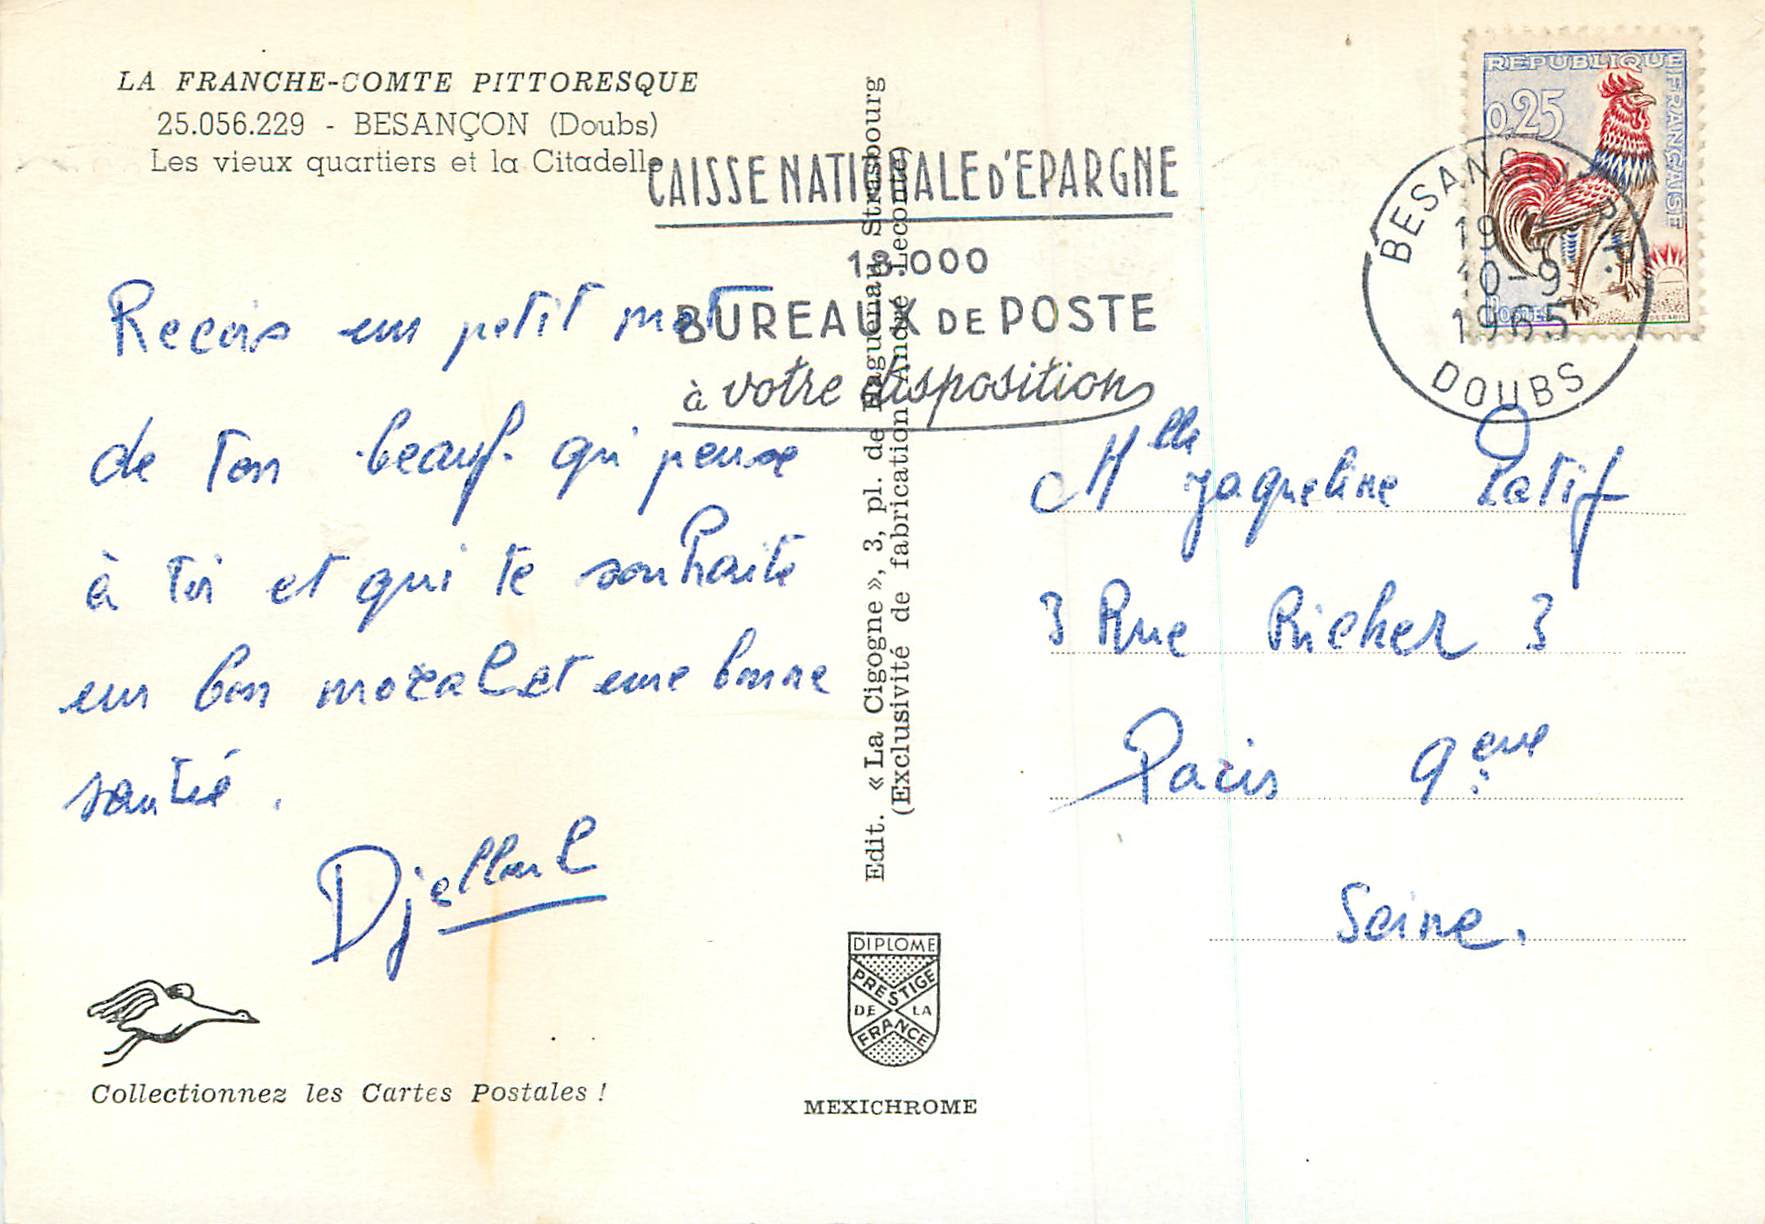 LA FRANCHE-COMTE PITTORESQUE
25.056.229 - BESANÇON (Doubs)
Les vieux quartiers et la Citadelle
CAISSE NATIONALE D'EPARGNE
18.000
BUREAUX DE POSTE
à votre disposition
REPUBLIQUE FRANÇAISE
0,25
POSTES
BESANCON R.P.
19
10-9
1965
DOUBS
Recois un petit mot
de ton beauf. qui pense
à toi et qui te souhaite
un bon moral et une bonne
santé.
Djelloul
Edit. « La Cigogne », 3, pl. de Haguenau, Strasbourg
(Exclusivité de fabrication André Leconte)
Mlle Jaqueline Latif
3 Rue Richer 3
Paris 9eme
Seine.
Collectionnez les Cartes Postales !
DIPLOME
PRESTIGE
DE LA
FRANCE
MEXICHROME